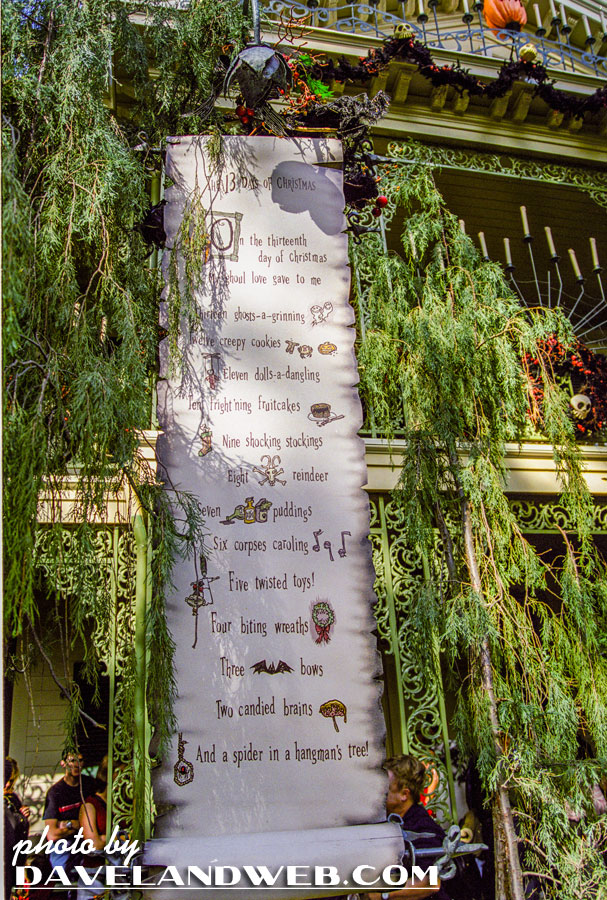 The 13 Days of Christmas
On the thirteenth
day of Christmas
my ghoul love gave to me
Thirteen ghosts-a-grinning
Twelve creepy cookies
Eleven dolls-a-dangling
Ten fright'ning fruitcakes
Nine shocking stockings
Eight reindeer
Seven puddings
Six corpses caroling
Five twisted toys!
Four biting wreaths
Three bows
Two candied brains
And a spider in a hangman's tree!
photo by
DAVELANDWEB.COM